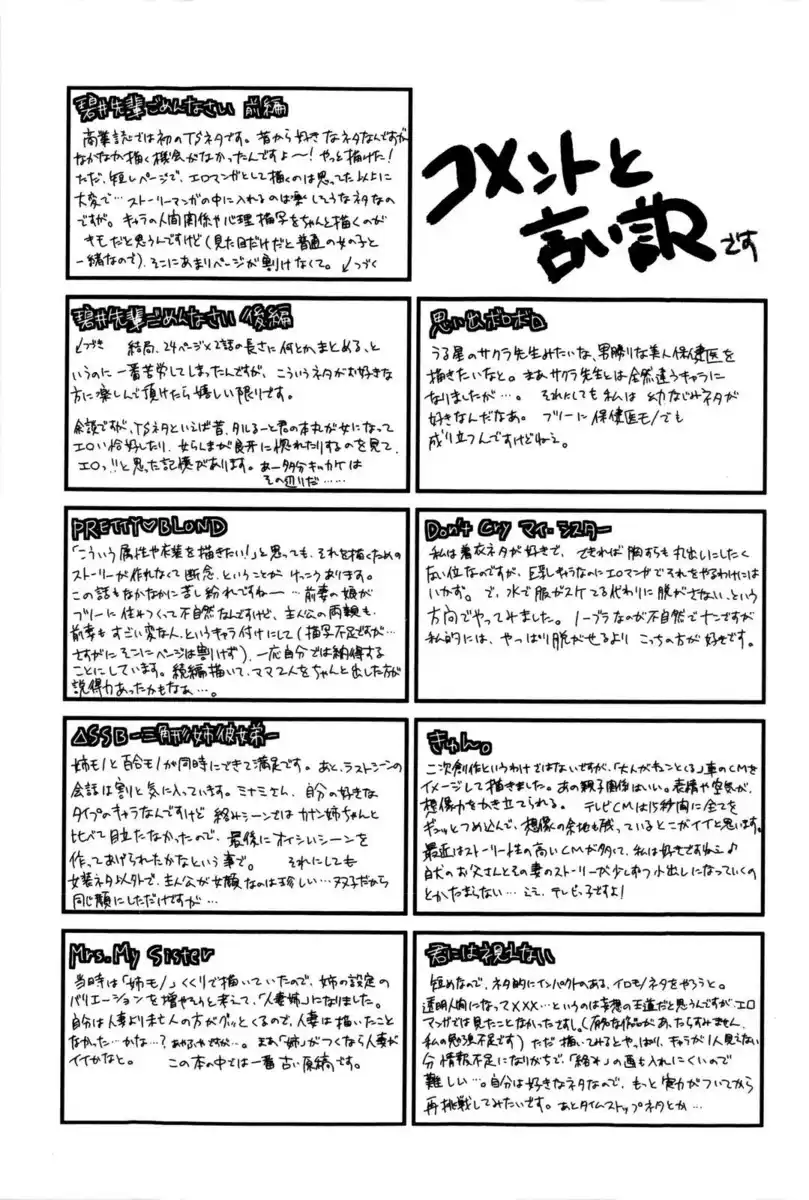 コメントと
言い訳です
碧井先輩ごめんなさい 前編
商業誌では初のTSネタです。昔から好きなネタなんですが
なかなか描く機会がなかったんですよ～！やっと描けた！
ただ、短いページで、エロマンガとして描くのは思ってた以上に
大変で…ストーリーマンガの中に入れるのは楽しそうなネタなの
ですが。キャラの人間関係や心理描写をちゃんと描くのが
キモだと思うんですけど(見た目だけだと普通の女の子と
一緒なので)、そこにあまりページが割けなくて。↙つづく
碧井先輩ごめんなさい 後編
↖つづき 結局、24ページ×2話の長さに何とかまとめる、と
いうのに一番苦労してしまったんですが、こういうネタがお好きな
方に楽しんで頂けたら嬉しい限りです。
余談ですが、TSネタといえば昔、タルるート君の本丸が女になって
エロい恰好したり、女らんまが良牙に惚れたりするのを見て、
エロッ!!と思った記憶があります。あー多分キッカケは
その辺りだ……
思い出ボロボロ
うる星のサクラ先生みたいな、男勝りな美人保健医を
描きたいなと。まあサクラ先生とは全然違うキャラに
なりましたが…。それにしても私は幼なじみネタが
好きなんだなあ。フツーに保健医モノでも
成り立つんですけどねェ。
PRETTY♡BLOND
「こういう属性や衣装を描きたい！」と思っても、それを描くための
ストーリーが作れなくて断念、ということがけっこうあります。
この話もなかなかに苦し紛れですねー…前妻の娘が
フツーに住みつくって不自然なんですけど、主人公の両親も、
前妻もすごい変な人、というキャラ付けにして(描写不足ですが…
さすがにそこにページは割けず)、一応自分では納得する
ことにしています。続編描いて、ママ2人をちゃんと出した方が
説得力あったかもなぁ…。
Don't Cry マイ・シスター
私は着衣ネタが好きで、できれば胸すらも丸出しにしたく
ない位なのですが、巨乳キャラなのにエロマンガでそれをやるわけには
いかず。で、水で服がスケてる代わりに脱がさない、という
方向でやってみました。ノーブラなのが不自然でナンですが
私的には、やっぱり脱がせるよりこっちの方が好きです。
△SSB -三角形姉彼女弟-
姉モノと百合モノが同時にできて満足です。あと、ラストシーンの
会話は割と気に入っています。ミナミさん、自分の好きな
タイプのキャラなんですけど絡みシーンではカナン姉ちゃんと
比べて目立たなかったので、最後にオイシイシーンを
作ってあげられたかなという事で。それにしても
女装ネタ以外で、主人公が女顔なのは珍しい…双子だから
同じ顔にしただけですが…
きゅん。
二次創作というわけではないですが、「大人がキュンとくる」車のCMを
イメージして描きました。あの親子関係はいい。表情や空気が、
想像力をかき立てられる。テレビCMは15秒間に全てを
ギュッとつめ込んで、想像の余地も残っているとこがイイと思います。
最近はストーリー性の高いCMが多くて、私は好きですねぇ♪
白犬のお父さんとその妻のストーリーが少しずつ小出しになっていくの
とかたまらない…ええ、テレビっ子ですよ！
Mrs. My Sister
当時は「姉モノ」くくりで描いていたので、姉の設定の
バリエーションを増やそうと考えて、「人妻姉」になりました。
自分は人妻より未亡人の方がグッとくるので、人妻は描いたこと
なかった…かな…？あやふやですが…。まぁ「姉」がつくなら人妻が
イイかなと。この本の中では一番古い原稿です。
君には視えない
短めなので、ネタ的にインパクトのある、イロモノネタをやろうと。
透明人間になって×××…というのは妄想の王道だと思うんですが、エロ
マンガでは見たことなかったですし、(有名な作品があったらすみません、
私の勉強不足です)ただ描いてみるとやっぱり、キャラが1人見えない
分情報不足になりがちで、「絡み」の画も入れにくいので
難しい…。自分は好きなネタなので、もっと実力がついてから
再挑戦してみたいです。あとタイムストップネタとか…